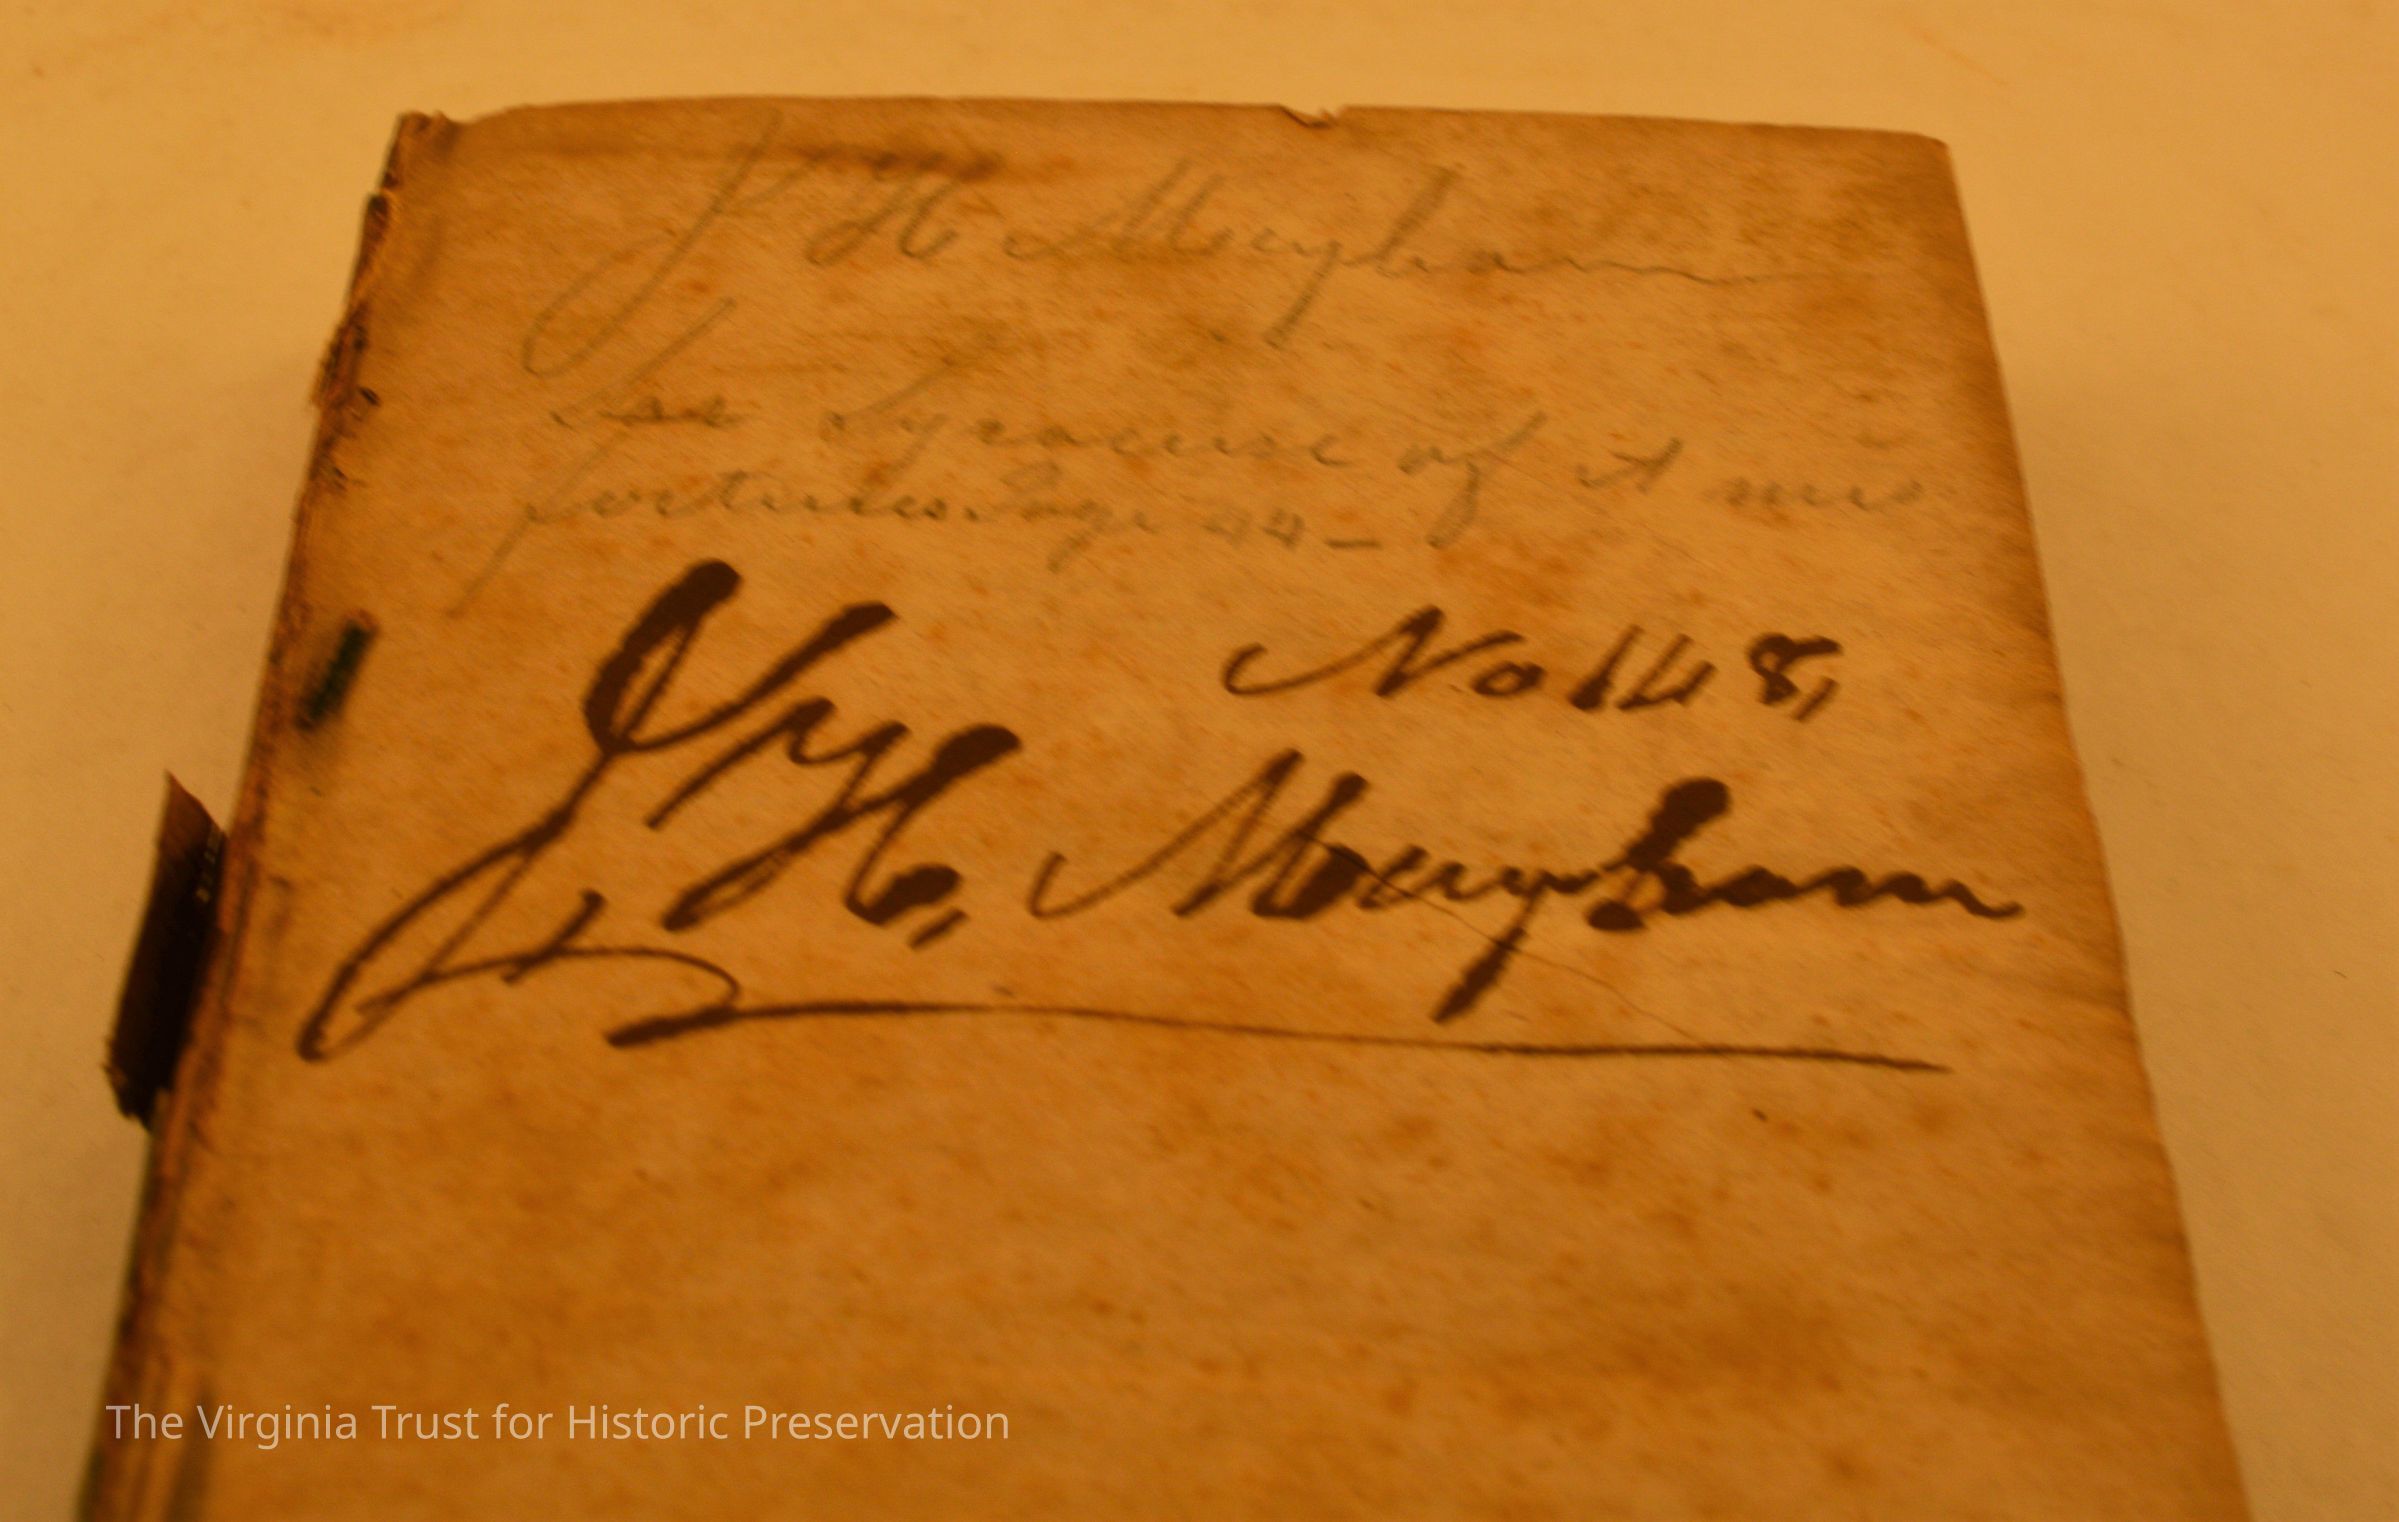 J H Meigham
See Syracuse of it mis
fortunes Page 44 —
No 148,
J. H, Meigham
The Virginia Trust for Historic Preservation